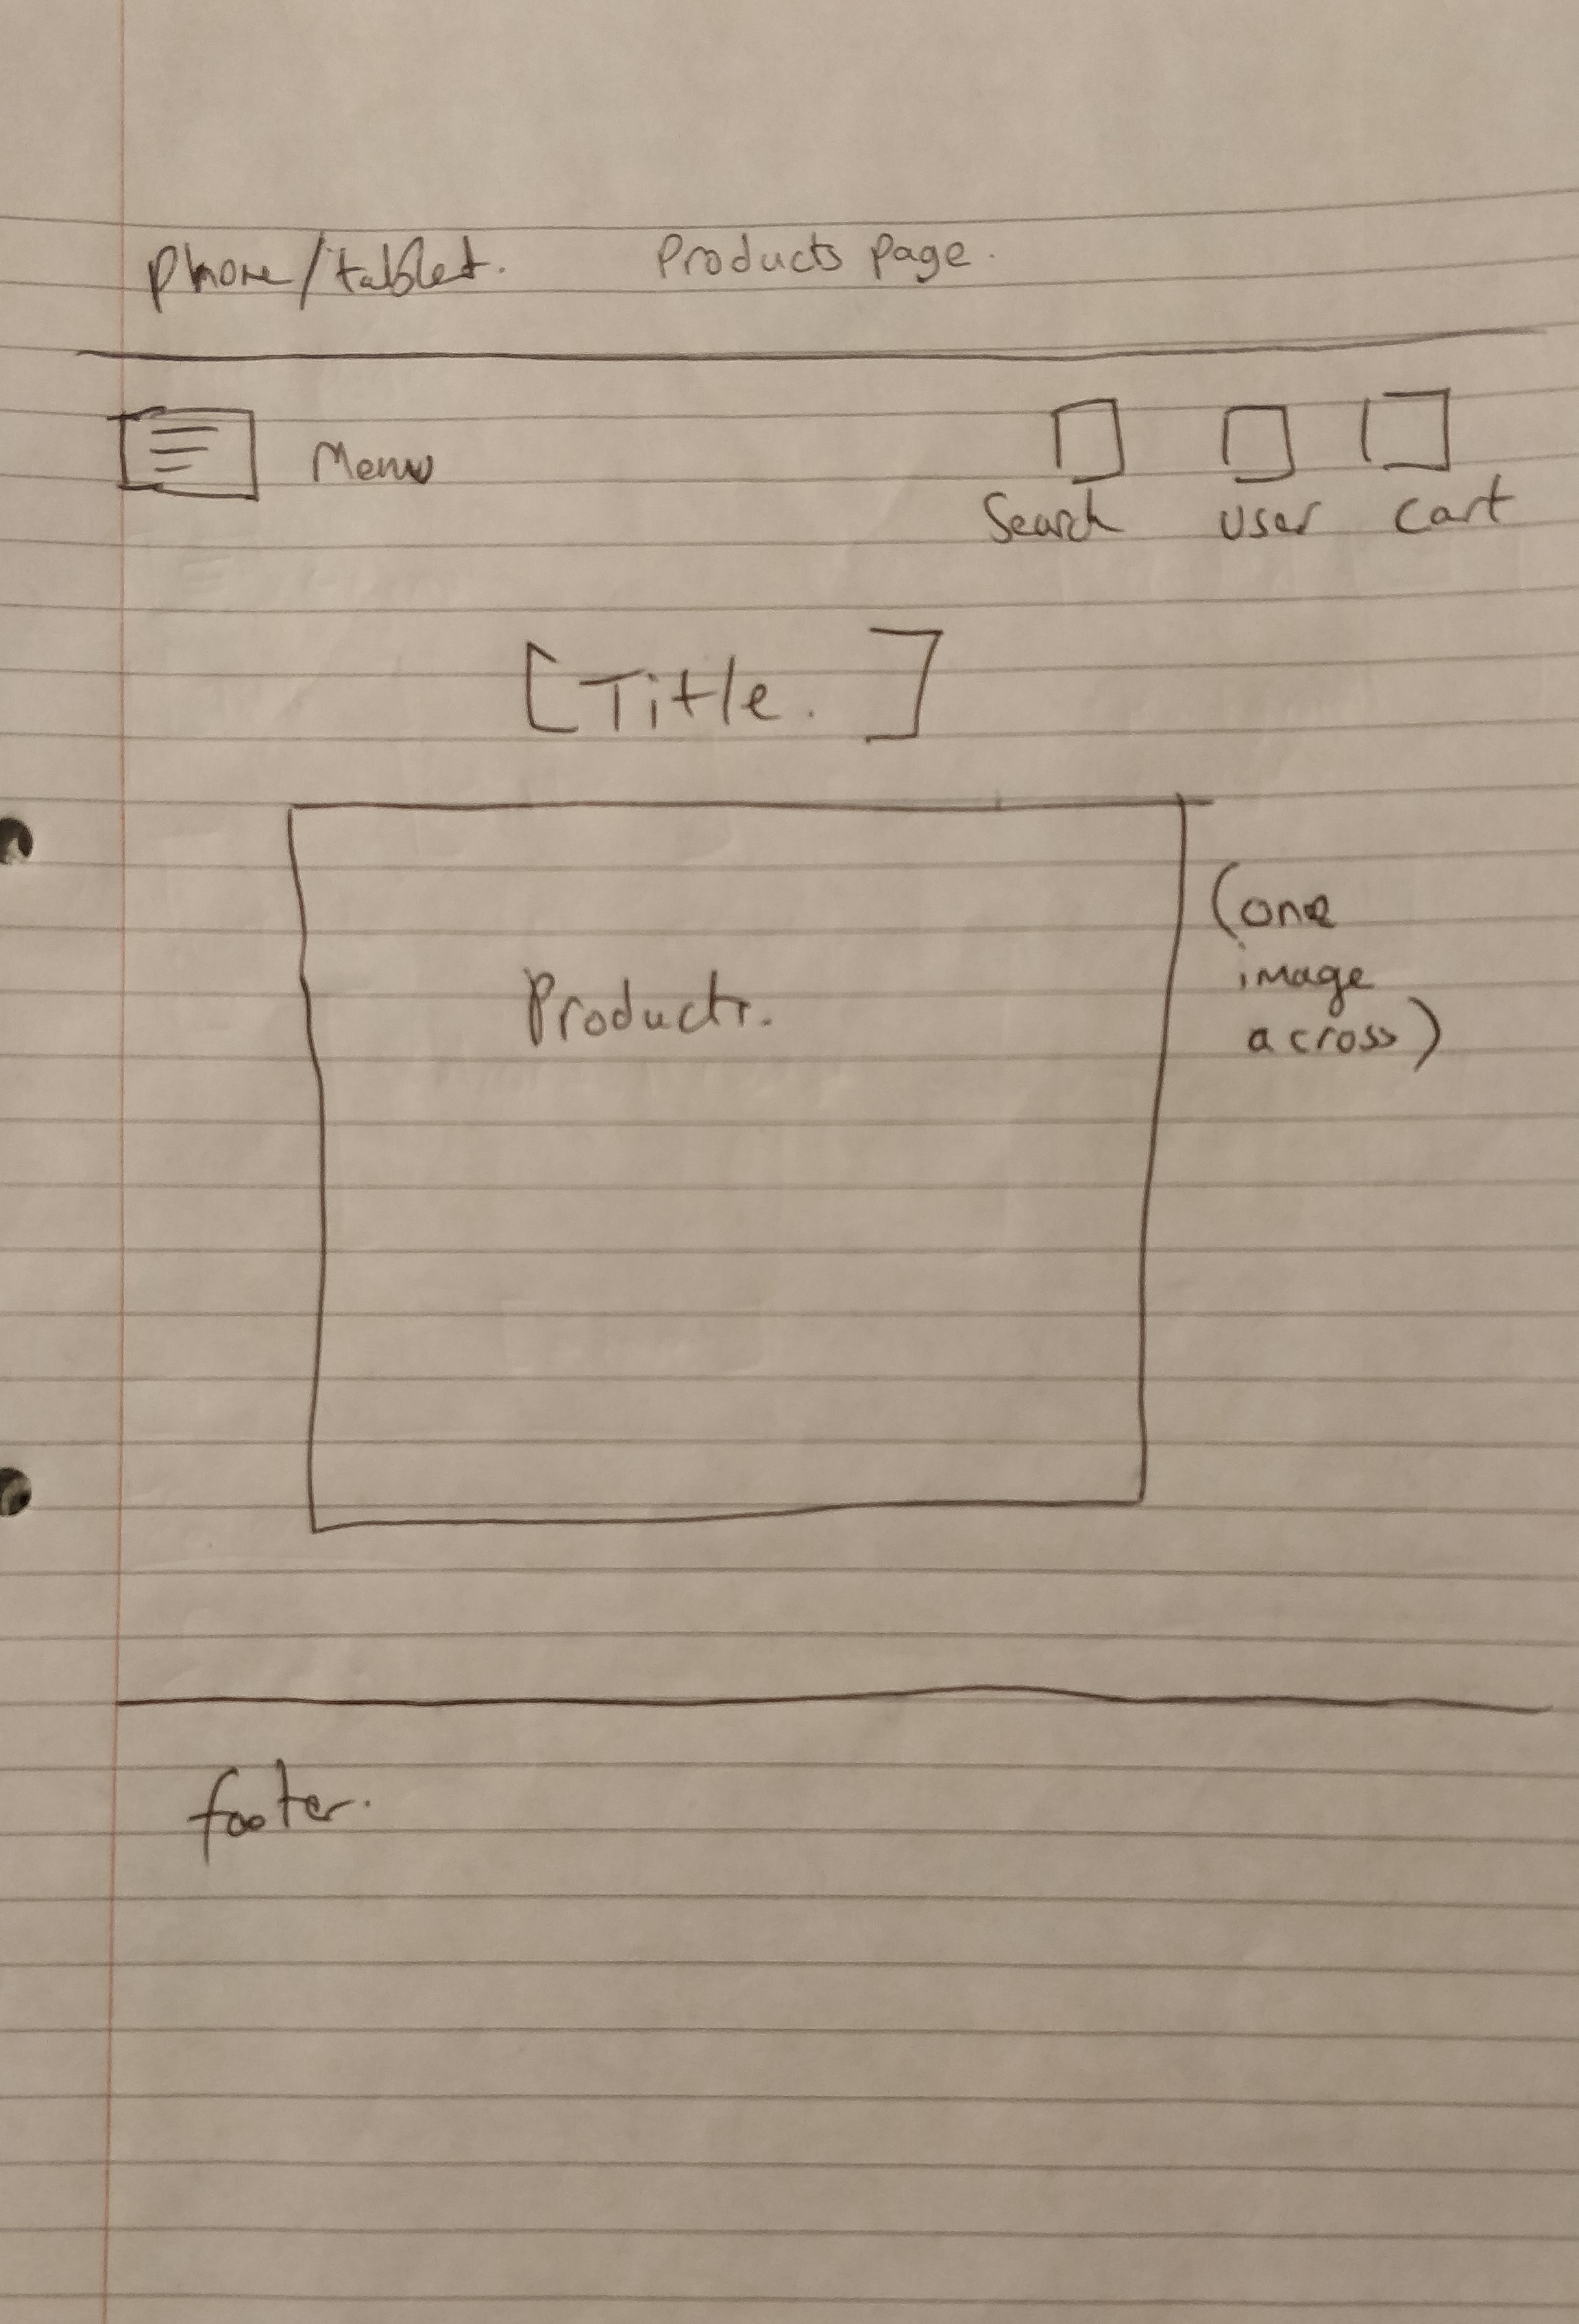 Phone/tablet. Products Page.
Menu
Search User Cart
[Title.]
Products.
(one
image
across)
footer.